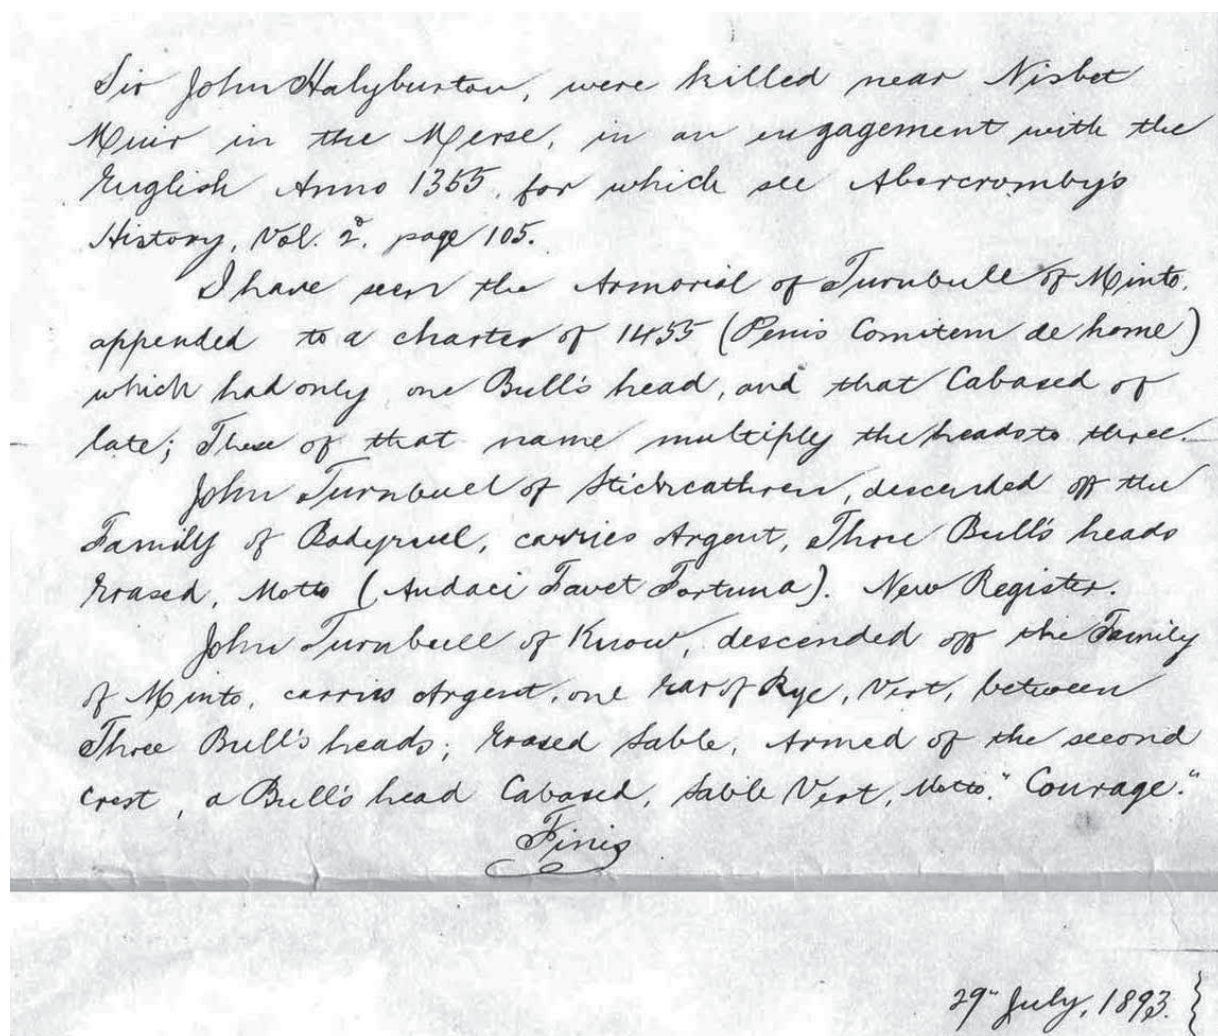 Sir John Halyburton, were killed near Nisbet
Muir in the Merse, in an engagement with the
English Anno 1355, for which see Abercromby's
History, Vol. 2d. page 105.
I have seen the Armorial of Turnbull of Minto,
appended to a charter of 1455 (Penis Comitem de home)
which had only one Bull's head, and that Cabased of
late; These of that name multiply the heads to three.
John Turnbull of Stickcathren, descended off the
Family of Bodyruel, carries Argent, Three Bull's heads
Erased, Motto (Audaci Favet Fortuna). New Register.
John Turnbull of Know, descended off the Family
of Minto, carries Argent, one Ear of Rye, Vert, between
Three Bull's heads; Erased Sable, Armed of the second
Crest, a Bull's head Cabased, Sable Vert, Motto, "Courage."
Finis
29" July, 1893.